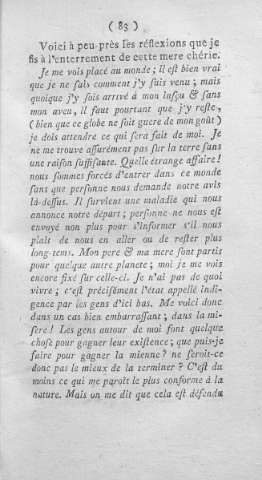 ( 83 )
Voici à peu-près ſes réflexions que je
fis à l'enterrement de cette mere chérie.
Je me vois placé au monde ; il eſt bien vrai
que je ne ſais comment j'y ſais venu ; mais
quoique j'y ſois arrivé à mon inſçu & ſans
mon aveu, il faut pourtant que j'y reſte,
(bien que ce globe ne ſoit guere de mon goût)
je dois attendre ce qui ſera fait de moi. Je
ne me trouve aſſurément pas ſur la terre ſans
une raiſon ſuffiſante. Quelle étrange affaire !
nous ſommes forcés d'entrer dans ce monde
ſans que perſonne nous demande notre avis
là-deſſus. Il ſurvient une maladie qui nous
annonce notre départ ; perſonne ne nous eſt
envoyé non plus pour s'informer s'il nous
plait de nous en aller ou de reſter plus
long-tems. Mon pere & ma mere ſont partis
pour quelque autre planete ; moi je me vois
encore fixé ſur celle-ci. Je n'ai pas de quoi
vivre ; c'eſt préciſément l'état appellé indi-
gence par les gens d'ici bas. Me voici donc
dans un cas bien embarraſſant ; dans la mi-
ſere ! Les gens autour de moi font quelque
choſe pour gagner leur exiſtence ; que puis-je
faire pour gagner la mienne ? ne ſeroit-ce
donc pas le mieux de la terminer ? C'eſt du
moins ce qui me paroît le plus conforme à la
nature. Mais on me dit que cela eſt défendu